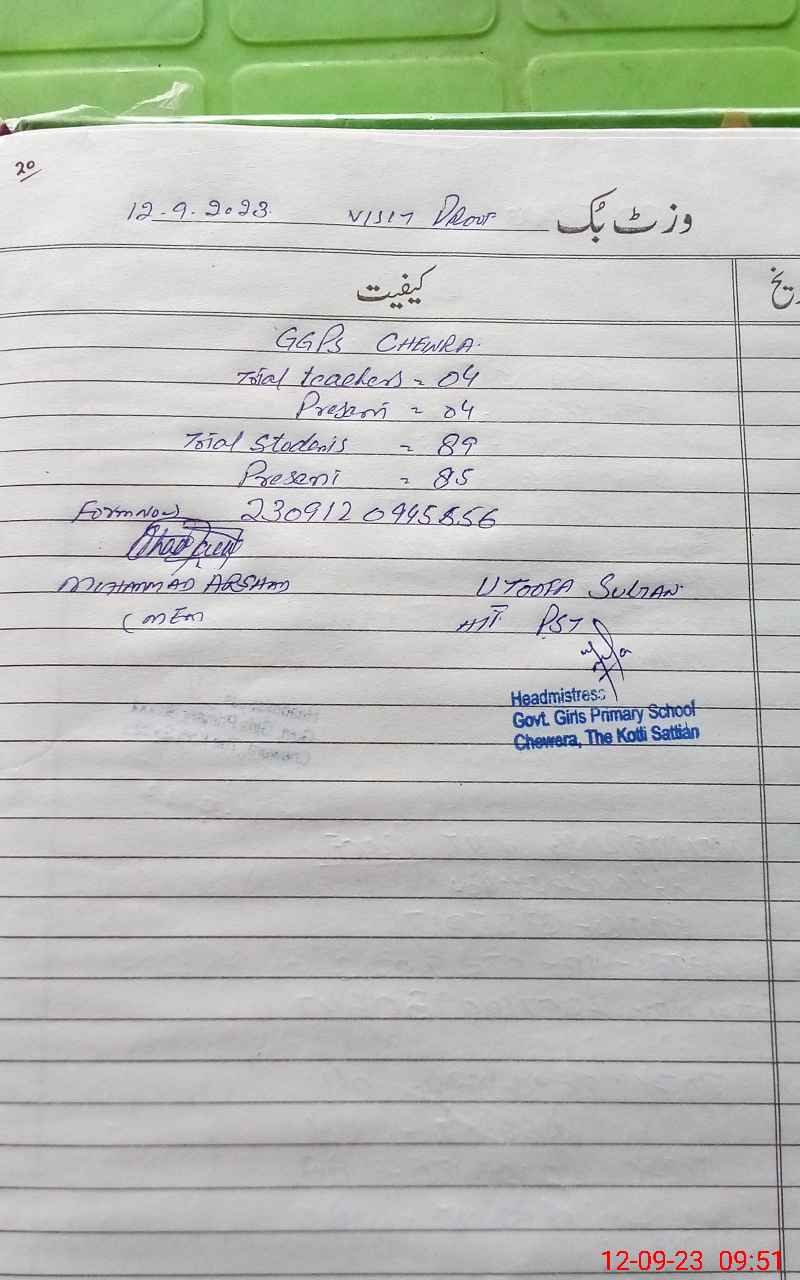 20
12.9.2023 VISIT PROOF وزٹ بُک
کیفیت
GGPS CHEWRA.
Total teachers = 04
Present = 04
Total Students = 89
Present = 85
Form No 230912 0945856
MUHAMMAD ARSHAD UTOOFA SULTAN.
(MEA HT PST
Headmistress
Govt. Girls Primary School
Chewera, The Kotli Sattian
12-09-23 09:51